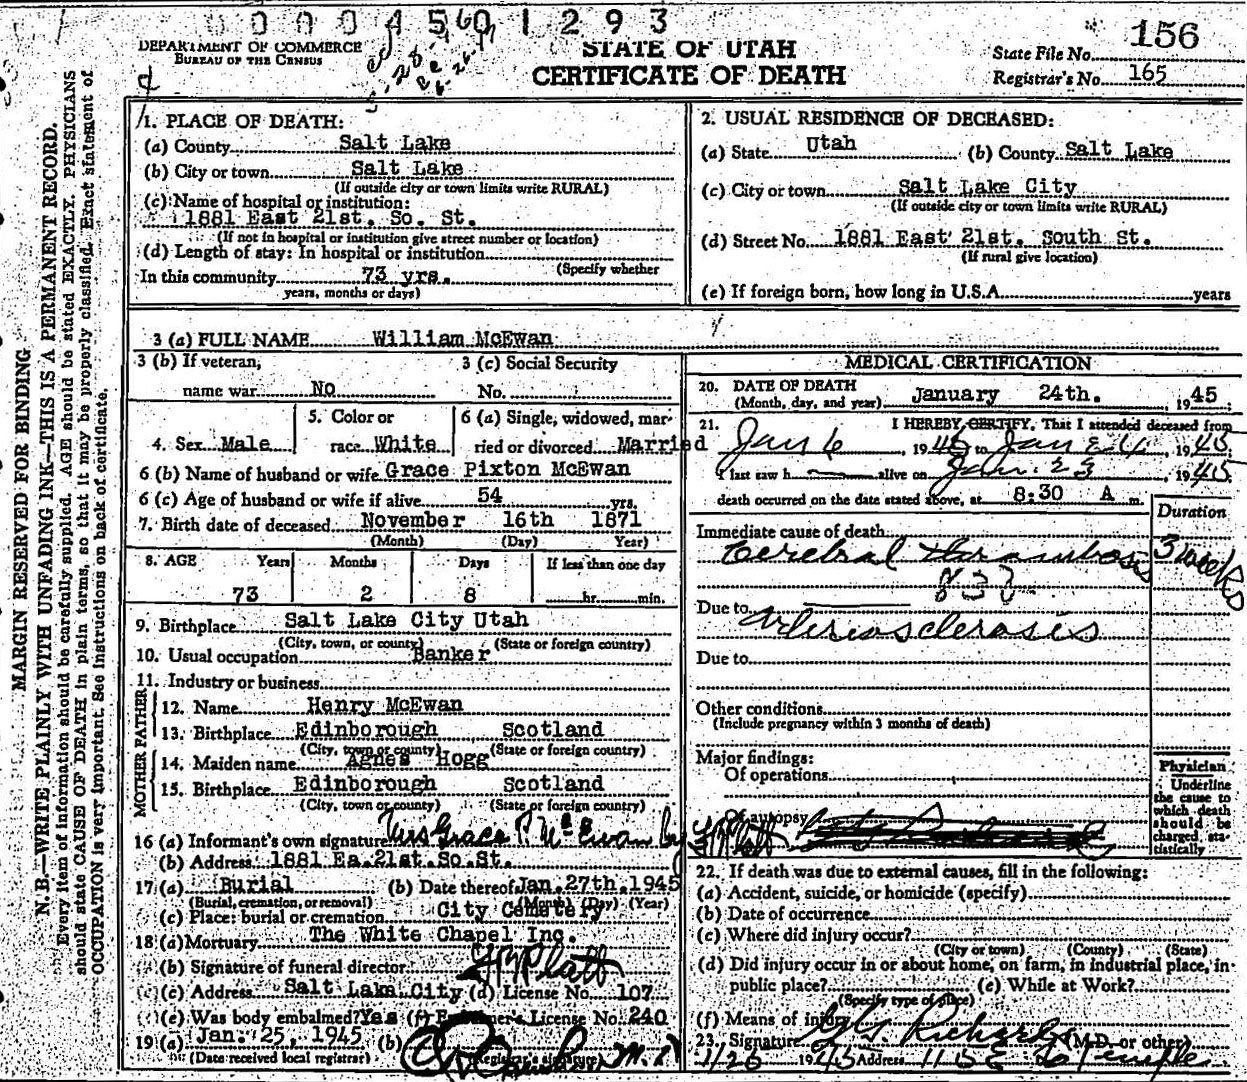 0004501293
DEPARTMENT OF COMMERCE
BUREAU OF THE CENSUS
STATE OF UTAH
CERTIFICATE OF DEATH
State File No. 156
Registrar's No. 165
MARGIN RESERVED FOR BINDING
N. B.—WRITE PLAINLY WITH UNFADING INK—THIS IS A PERMANENT RECORD.
Every item of information should be carefully supplied. AGE should be stated EXACTLY. PHYSICIANS
should state CAUSE OF DEATH in plain terms, so that it may be properly classified. Exact statement of
OCCUPATION is very important. See instructions on back of certificate.
1. PLACE OF DEATH:
(a) County Salt Lake
(b) City or town Salt Lake
(If outside city or town limits write RURAL)
(c) Name of hospital or institution:
1881 East 21st. So. St.
(If not in hospital or institution give street number or location)
(d) Length of stay: In hospital or institution
(Specify whether
In this community 73 yrs.
years, months or days)
2. USUAL RESIDENCE OF DECEASED:
(a) State Utah (b) County Salt Lake
(c) City or town Salt Lake City
(If outside city or town limits write RURAL)
(d) Street No. 1881 East 21st. South St.
(If rural give location)
(e) If foreign born, how long in U.S.A. years
3 (a) FULL NAME William McEwan
3 (b) If veteran,
name war No
3 (c) Social Security
No.
4. Sex Male
5. Color or
race White
6 (a) Single, widowed, mar-
ried or divorced Married
6 (b) Name of husband or wife Grace Pixton McEwan
6 (c) Age of husband or wife if alive 54 yrs.
7. Birth date of deceased November 16th 1871
(Month) (Day) Year)
8. AGE Years Months Days If less than one day
73 2 8 hr. min.
9. Birthplace Salt Lake City Utah
(City, town, or county) (State or foreign country)
10. Usual occupation Banker
11. Industry or business
FATHER
12. Name Henry McEwan
13. Birthplace Edinborough Scotland
(City, town or county) (State or foreign country)
MOTHER
14. Maiden name Agnes Hogg
15. Birthplace Edinborough Scotland
(City, town or county) (State or foreign country)
16 (a) Informant's own signature Mrs Grace P. McEwan by J W Platt
(b) Address 1881 Ea. 21st. So. St.
17 (a) Burial (b) Date thereof Jan. 27th. 1945
(Burial, cremation, or removal) (Month) (Day) (Year)
(c) Place: burial or cremation City Cemetery
18 (a) Mortuary The White Chapel Inc.
(b) Signature of funeral director
(c) Address Salt Lake City (d) License No. 107
(e) Was body embalmed? Yes (f) Embalmer's License No. 240
19 (a) Jan. 25, 1945 (b)
(Date received local registrar) (Registrar's signature)
MEDICAL CERTIFICATION
20. DATE OF DEATH January 24th. , 1945
(Month, day, and year)
21. I HEREBY CERTIFY, That I attended deceased from
Jan 6 , 1945 to Jan 24 , 1945
I last saw h alive on Jan. 23 , 1945
death occurred on the date stated above, at 8:30 A m.
Duration
Immediate cause of death
Cerebral thrombosis 3 weeks
Due to
Arteriosclerosis
Due to
Other conditions
(Include pregnancy within 3 months of death)
Major findings:
Of operations
Of autopsy
Physician
Underline
the cause to
which death
should be
charged, sta-
tistically
22. If death was due to external causes, fill in the following:
(a) Accident, suicide, or homicide (specify)
(b) Date of occurrence
(c) Where did injury occur?
(City or town) (County) (State)
(d) Did injury occur in or about home, on farm, in industrial place, in
public place? (e) While at Work?
(Specify type of place)
(f) Means of injury
23. Signature Richards (M.D. or other)
1/25 1945 Address 115 E So Temple